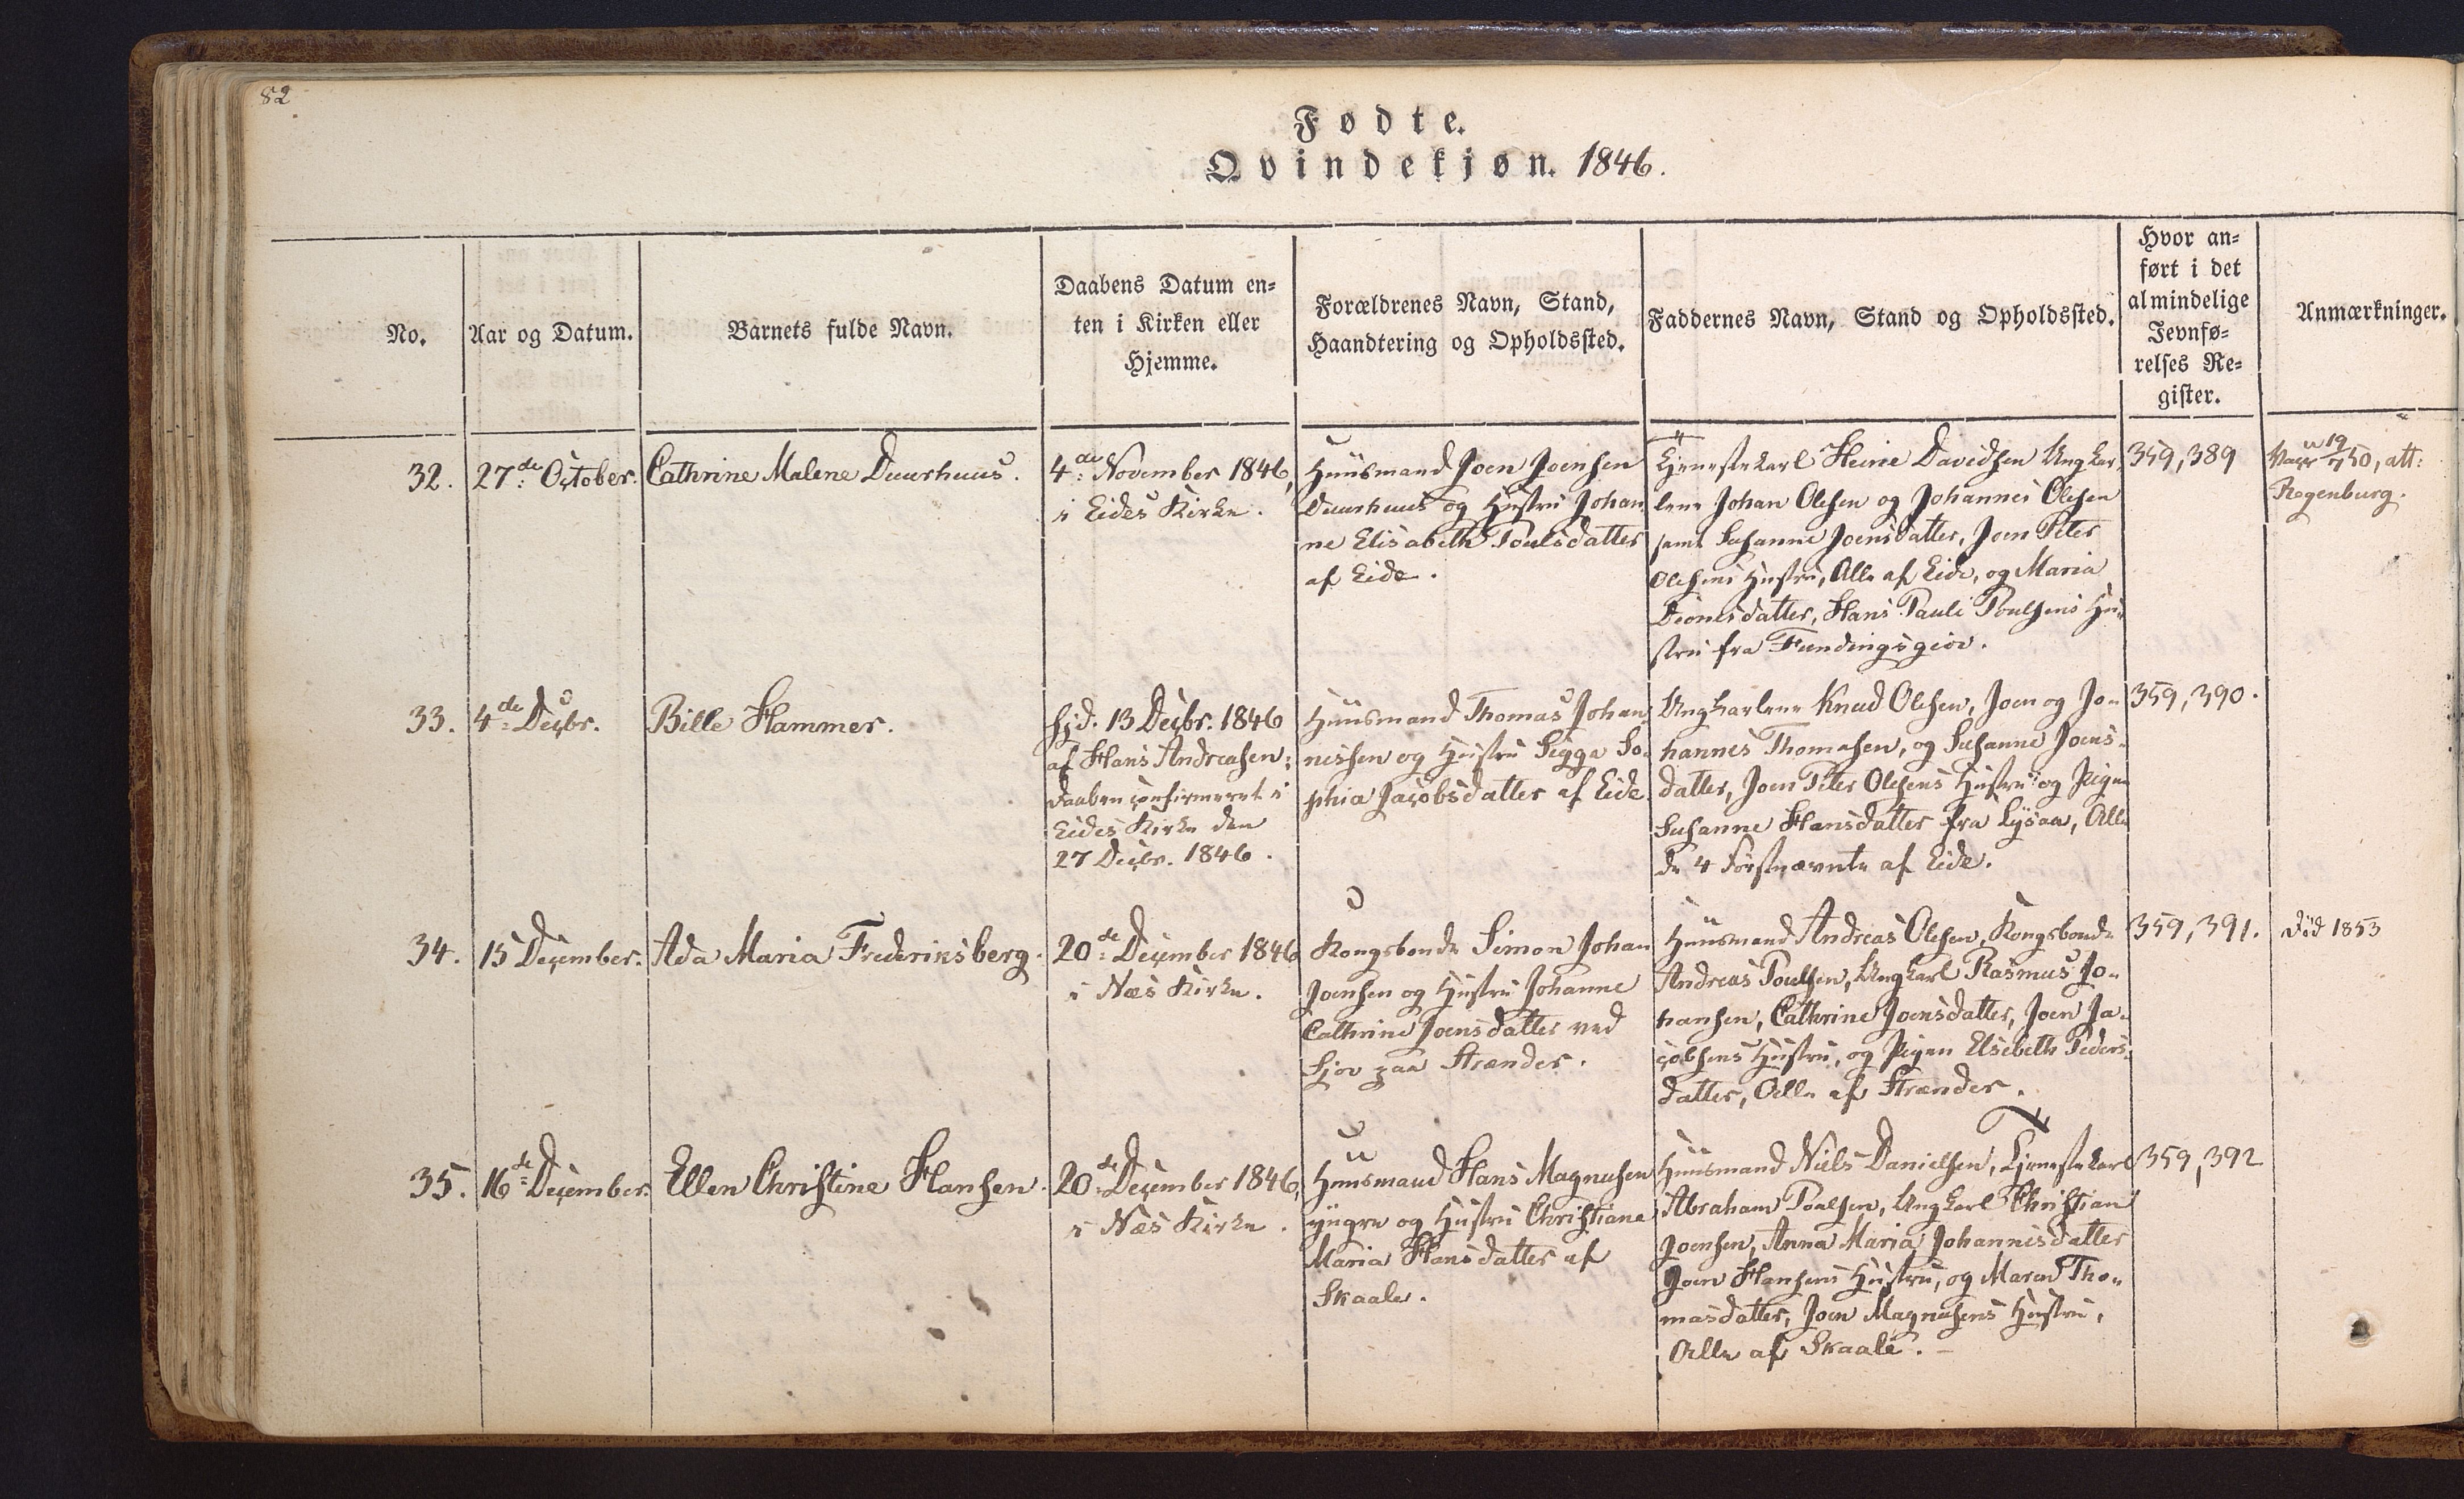 82
Fødte.
Qvindekjøn. 1846.
No.
Aar og Datum.
Barnets fulde Navn.
Daabens Datum en-
ten i Kirken eller
Hjemme.
Forældrenes Navn, Stand,
Haandtering og Opholdssted.
Faddernes Navn, Stand og Opholdssted.
Hvor an-
ført i det
almindelige
Jevnfø-
relses Re-
gister.
Anmærkninger.
32.
27de October.
Cathrine Malene Duurhuus.
4de November 1846,
i Eides Kirke.
Huusmand Joen Joensen
Duurhuus og Hustru Johan
ne Elisabeth Poulsdatter
af Eide.
Tjenestekarl Heine Davidsen Ungkar,
lene Johan Olesen og Johannes Olesen
samt Susanne Joensdatter, Joen Peter
Olesens Hustru, Alle af Eide, og Maria
Dionesdatter, Hans Pauli Poulsens Hu-
stru fra Fundingsgiov.
359,389
Vacc 19/7 50, att:
Regenburg.
33.
4de Decbr.
Bille Hammer.
hjd. 13 Decbr. 1846
af Hans Andreasen;
Daaben confirmeret i
Eides Kirke den
27 Decbr. 1846.
Huusmand Thomas Johan
nessen og Hustru Sigga So-
phia Jacobsdatter af Eide
Ungkarlene Knud Olesen, Joen og Jo-
hannes Thomasen, og Susanne Joens-
datter, Joen Peter Olesens Hustru og Pigen
Susanne Hansdatter fra Lysaa, Alle
de 4 Førstnævnte af Eide.
359,390.
34.
15 December.
Ada Maria Frederiksberg.
20de December 1846
i Næs Kirke.
Kongsbonde Simon Johan
Joensen og Hustru Johanne
Cathrine Joensdatter ved
Sjov paa Strænder.
Huusmand Andreas Olesen, Kongsbonde
Andreas Poulsen, Ungkarl Rasmus Jo-
hansen, Cathrine Joensdatter, Joen Ja-
cobsens Hustru, og Pigen Elsebeth Peders-
datter, Alle af Strænder.
359,391.
Død 1853
35.
16de December.
Ellen Christine Hansen.
20de December 1846,
i Næs Kirke.
Huusmand Hans Magnusen
yngre og Hustru Christiane
Maria Hansdatter af
Skaale.
Huusmand Niels Danielsen, Tjenestekarl
Abraham Poulsen, Ungkarl Christian
Joensen, Anna Maria Johannesdatter
Joen Hansens Hustru, og Maren Tho-
masdatter, Joen Magnusens Hustru,
Alle af Skaale.
359,392